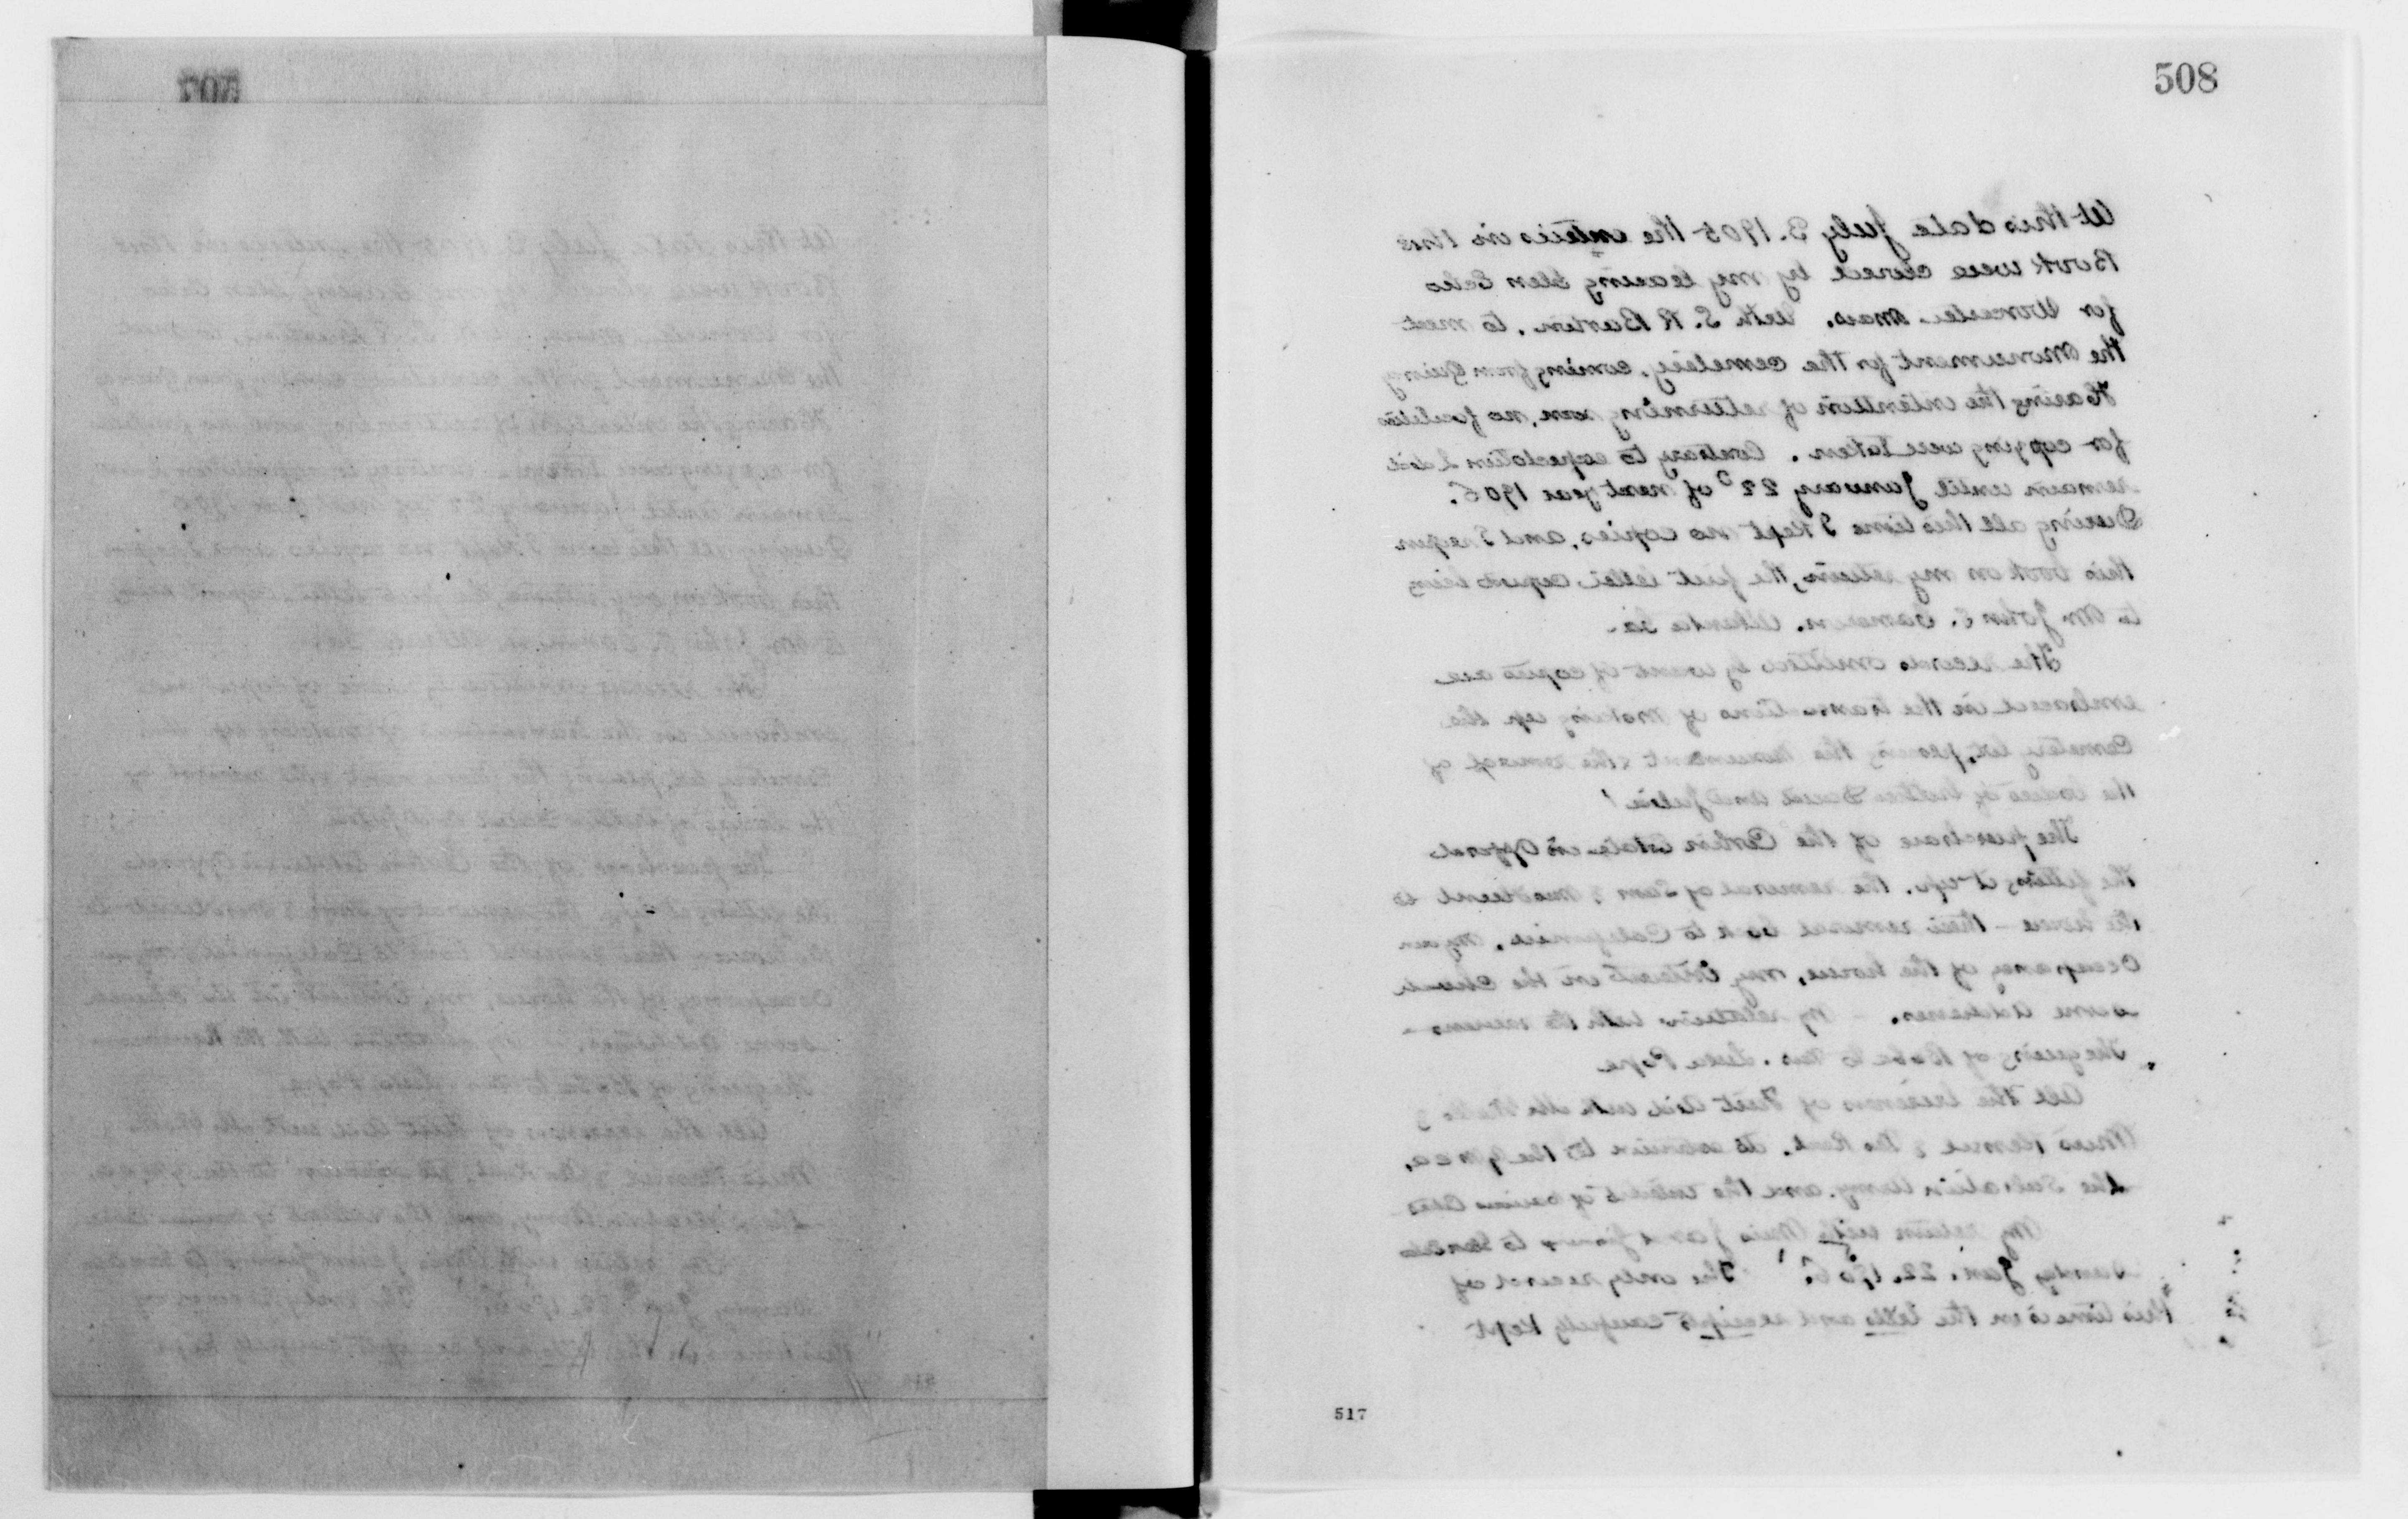 507
508
At this date July 3. 1905 the entries in this
Book were closed by my leaving Glen Echo
for Worcester Mass. with S. R Barton, to meet
the Monument for the cemetery, coming from Quincy
Having the intention of returning soon, no facilities
for copying were taken. Contrary to expectation I did
remain until January 22d of next year 1906.
During all this time I kept no copies, and I reopen
this book on my return, the first letter copied being
to Mr John C. Atlanta Ga.
The records omitted by want of copies are
embraced in the transactions of making up the
Cemetery lot, placing the Monument & the removal of
the bodies of brother David and Julia!
The purchase of the Corbin Estate in Oxford
the fitting it up. the removal of Sam & to
the house - their removal back to California. My own
Occupancy of the house, my interest in the
some Addresses. - My relations with the
The giving of Baba to Mrs. Pope
All the business of First Aid with Mr
Miss & The Road. its to the Y m c a,
the Salvation Army. and the interest of various
My return with Miss J and to
Sunday Jan. 22. 1906. The only record of
this time is in the letters and receipts carefully kept
517